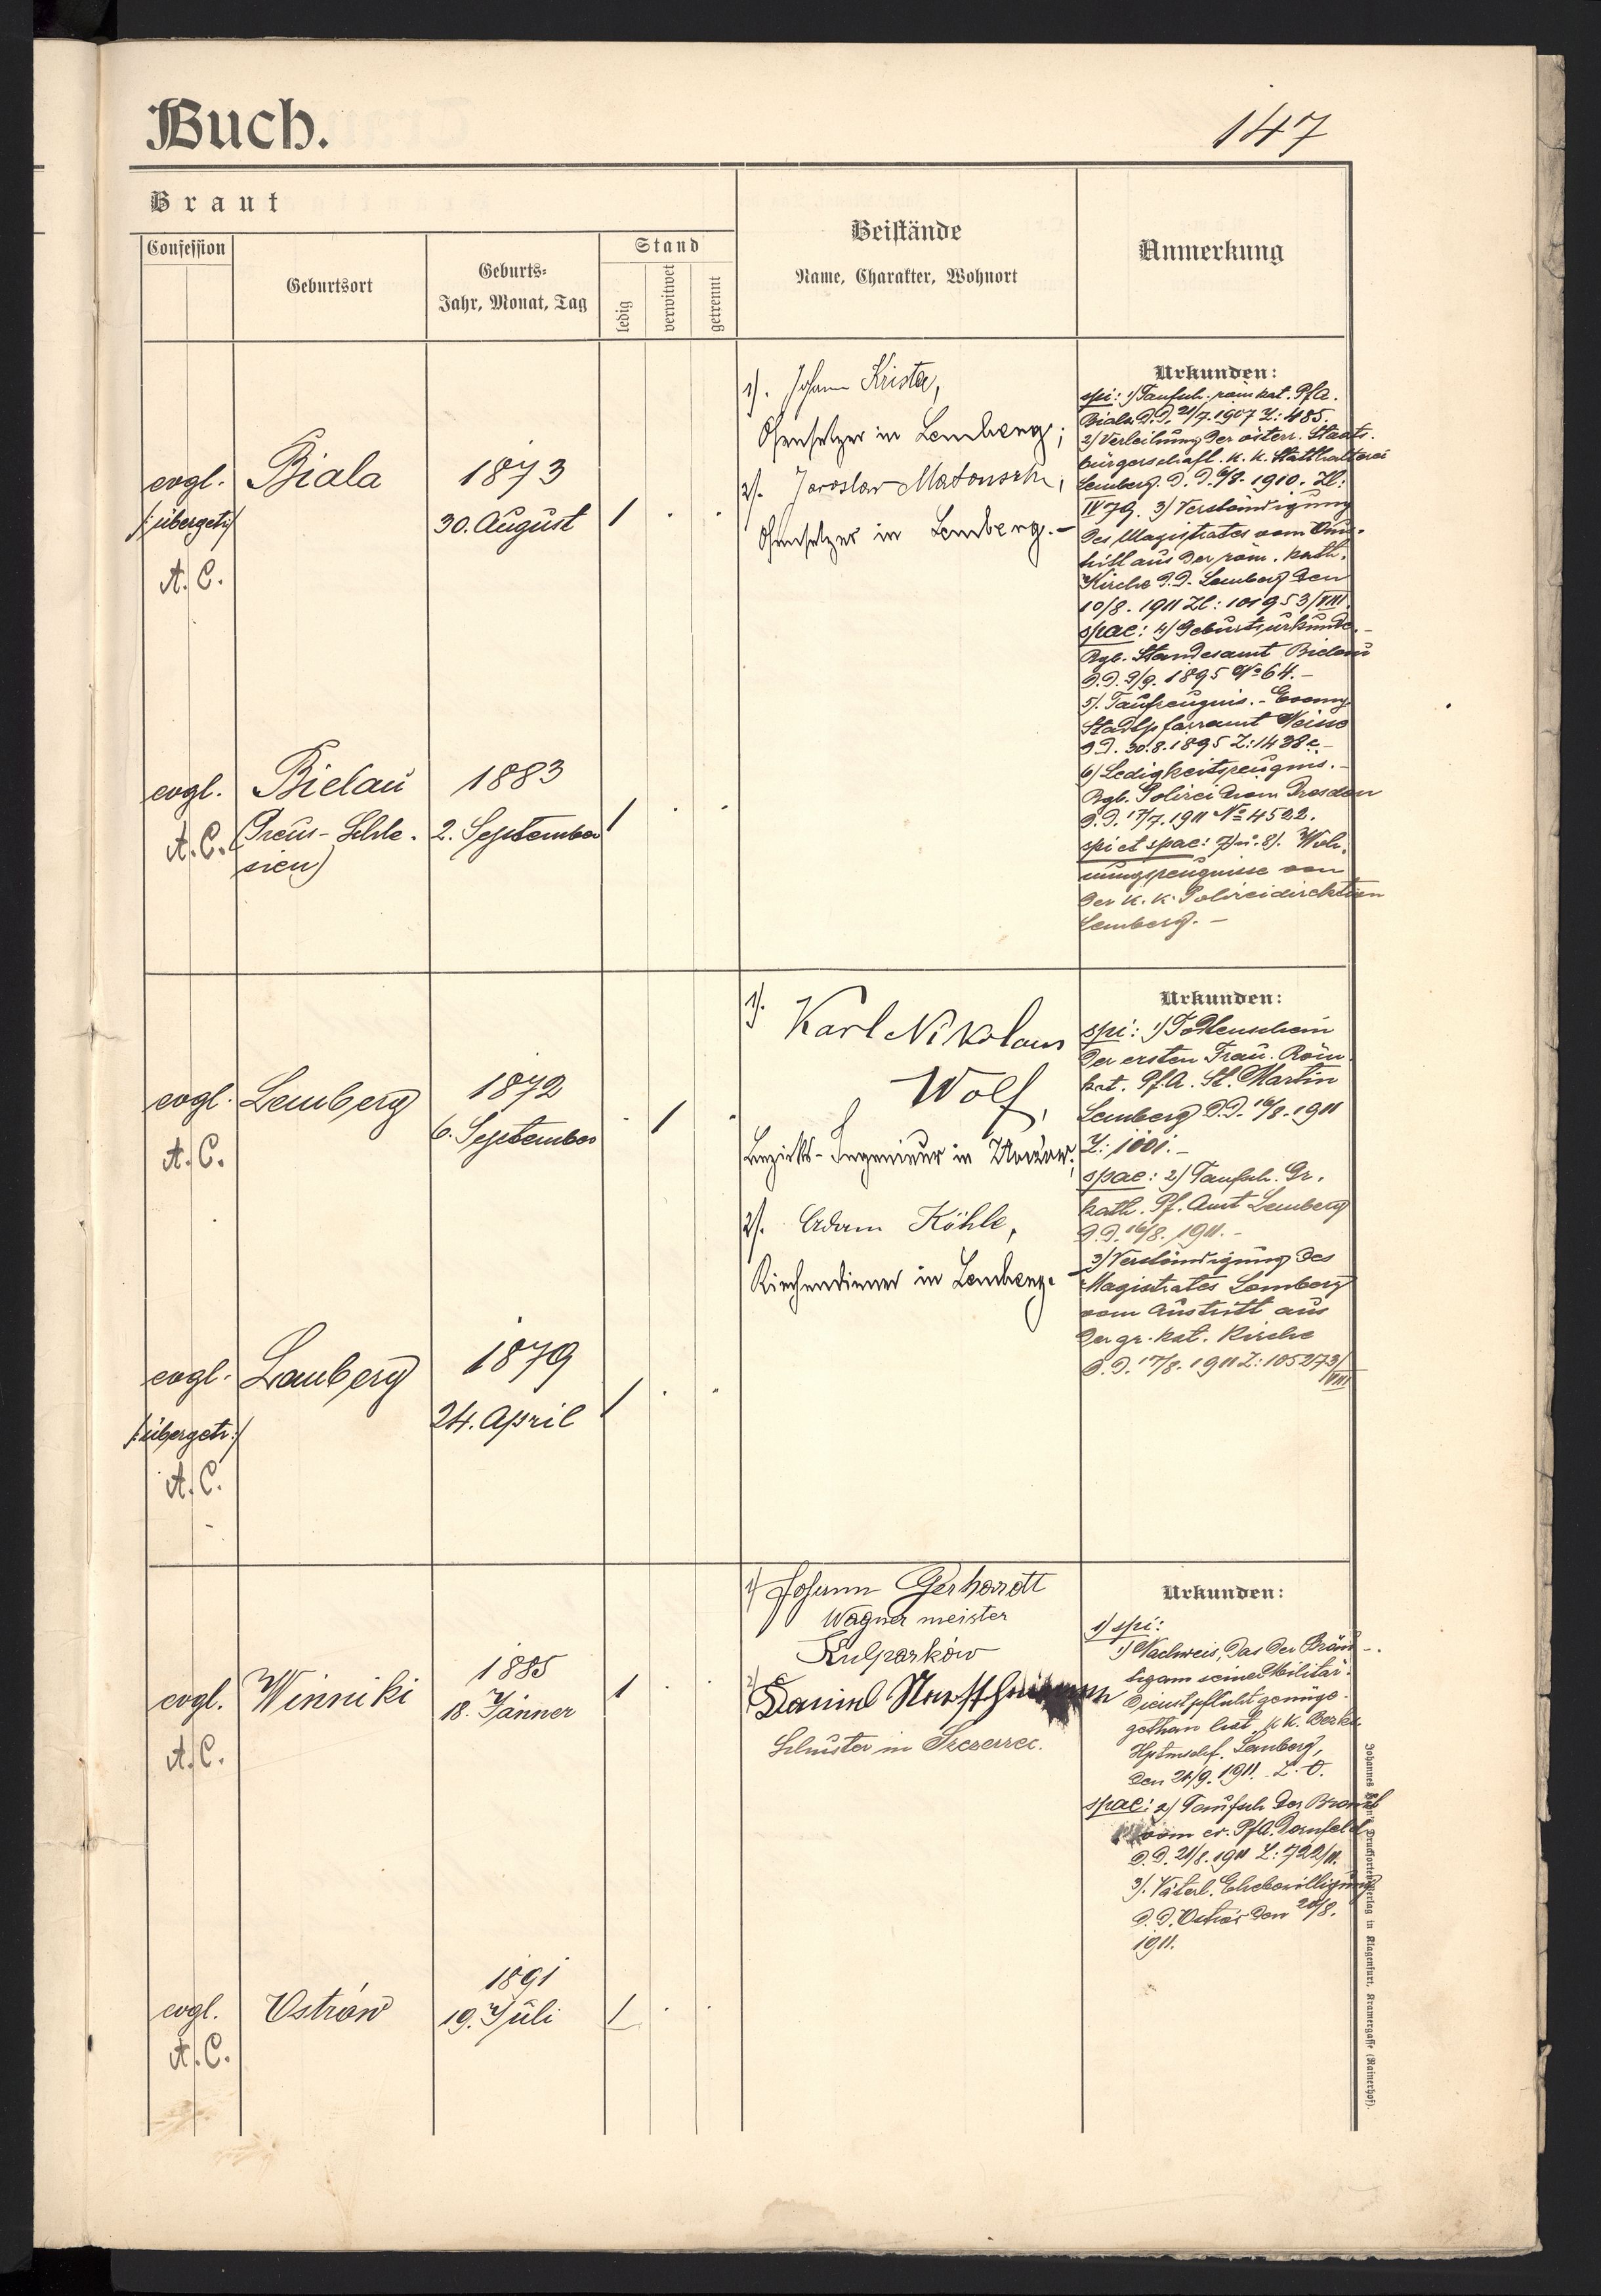 Buch.
147
Braut
Confession
Geburtsort
Geburts-
Jahr, Monat, Tag
Stand
ledig
verwitwet
getrennt
Beistände
Name, Charakter, Wohnort
Anmerkung
evgl.
/:übergetr:/
A. C.
Biala
1873
30. August
1 . .
evgl.
A. C.
Bielau
(Preus-Schle-
sien)
1883
2. September
1 . .
1). Johann Krista,
Ofensetzer in Lemberg;
2). Jaroslav Matouschek,
Ofensetzer in Lemberg.-
Urkunden:
spi: 1) Taufsch. röm kat. PfA.
Biala D.D. 2/7. 1907 Z: 485.
2) Verleihung der österr. Staats-
bürgerschaft. K. K. Statthalterei
Lemberg. D. D. 6/8. 1910. Zl:
IV 79. 3) Verständigung
des Magistrates vom Aus-
tritt aus der röm. kath.
Kirche D.D. Lemberg den
10/8. 1911 Zl: 101953/VIII.
spae: 4) Geburtsurkunde.-
Kgl. Standesamt Bielau
D.D. 9/9. 1895 No 64.-
5). Taufzeugnis.- Evang
Stadtpfarramt Neisse
D.D. 30.8.1895 Z: 1438
6) Ledigkeitszeugnis.-
Kgl. Polizei Dresden
D.D. 17/7. 1911 No 4522.
spi et spae: 7) u. 8). Woh-
nungszeugnisse von
der K. K. Polizeidirektion
Lemberg.-
evgl.
A. C.
Lemberg
1872
6. September
. 1 .
evgl.
/:übergetr:/
A. C.
Lemberg
1879
24. April
1 . .
1). Karl Nikolaus
Wolf,
Bezirks-Ingenieur in
2). Adam Köhle,
Kirchendiener in Lemberg.-
Urkunden:
spi: 1) Todtenschein
der ersten Frau. Röm
kat. Pf.A. St. Martin
Lemberg D.D. 16/8. 1911
Z: 1001.-
spae: 2) Taufsch. Gr.
kath. Pf. Amt Lemberg
D.D. 16/8. 1911.-
3) Verständigung des
Magistrates Lemberg
vom Austritt aus
der gr. kat. Kirche
D.D. 17/8. 1911 Z: 105273/
VIII
evgl.
A. C.
Winniki
1885
18. Jänner
1 . .
evgl.
A. C.
Ostrów
1891
19. Juli
1 . .
1) Johann Gerhardt
Wagner meister
Kulparków
2) Daniel
Schuster in Szczerzec.
Urkunden:
1) spi:
1) Nachweis, das der Bräu-
tigam seiner Militär-
dienstpflicht genüge
gethan hat. K. K. Bezks
Hptmschf. Lemberg,
den 21/9. 1911. Z. O.
spae: 2) Taufsch der Braut
vom ev. PfA. Dornfeld
D. D. 21/8. 1911 Z: 722/11.
3). Väterl. Ehebewilligung
D. D. Ostrów den 20/8.
1911.
Johannes Druckfortenverlag in Klagenfurt, Kramergasse (Rainerhof).